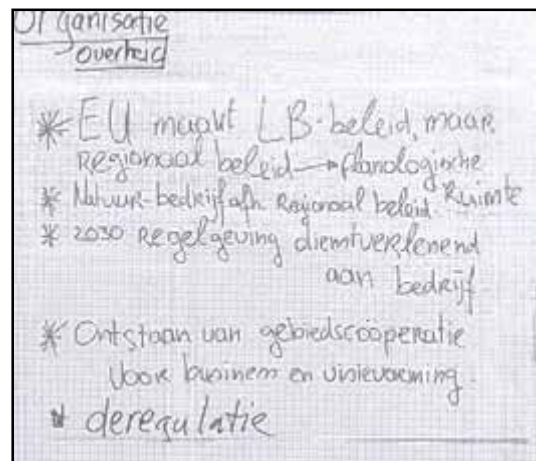 Organisatie
overheid
* EU maakt LB-beleid, maar
Regionaal beleid → planologische
* Natuur-bedrijf afh Regionaal beleid. Ruimte
* 2030 Regelgeving dienstverlenend
aan bedrijf
* Ontstaan van gebiedscoöperatie
voor business en visievorming.
* deregulatie